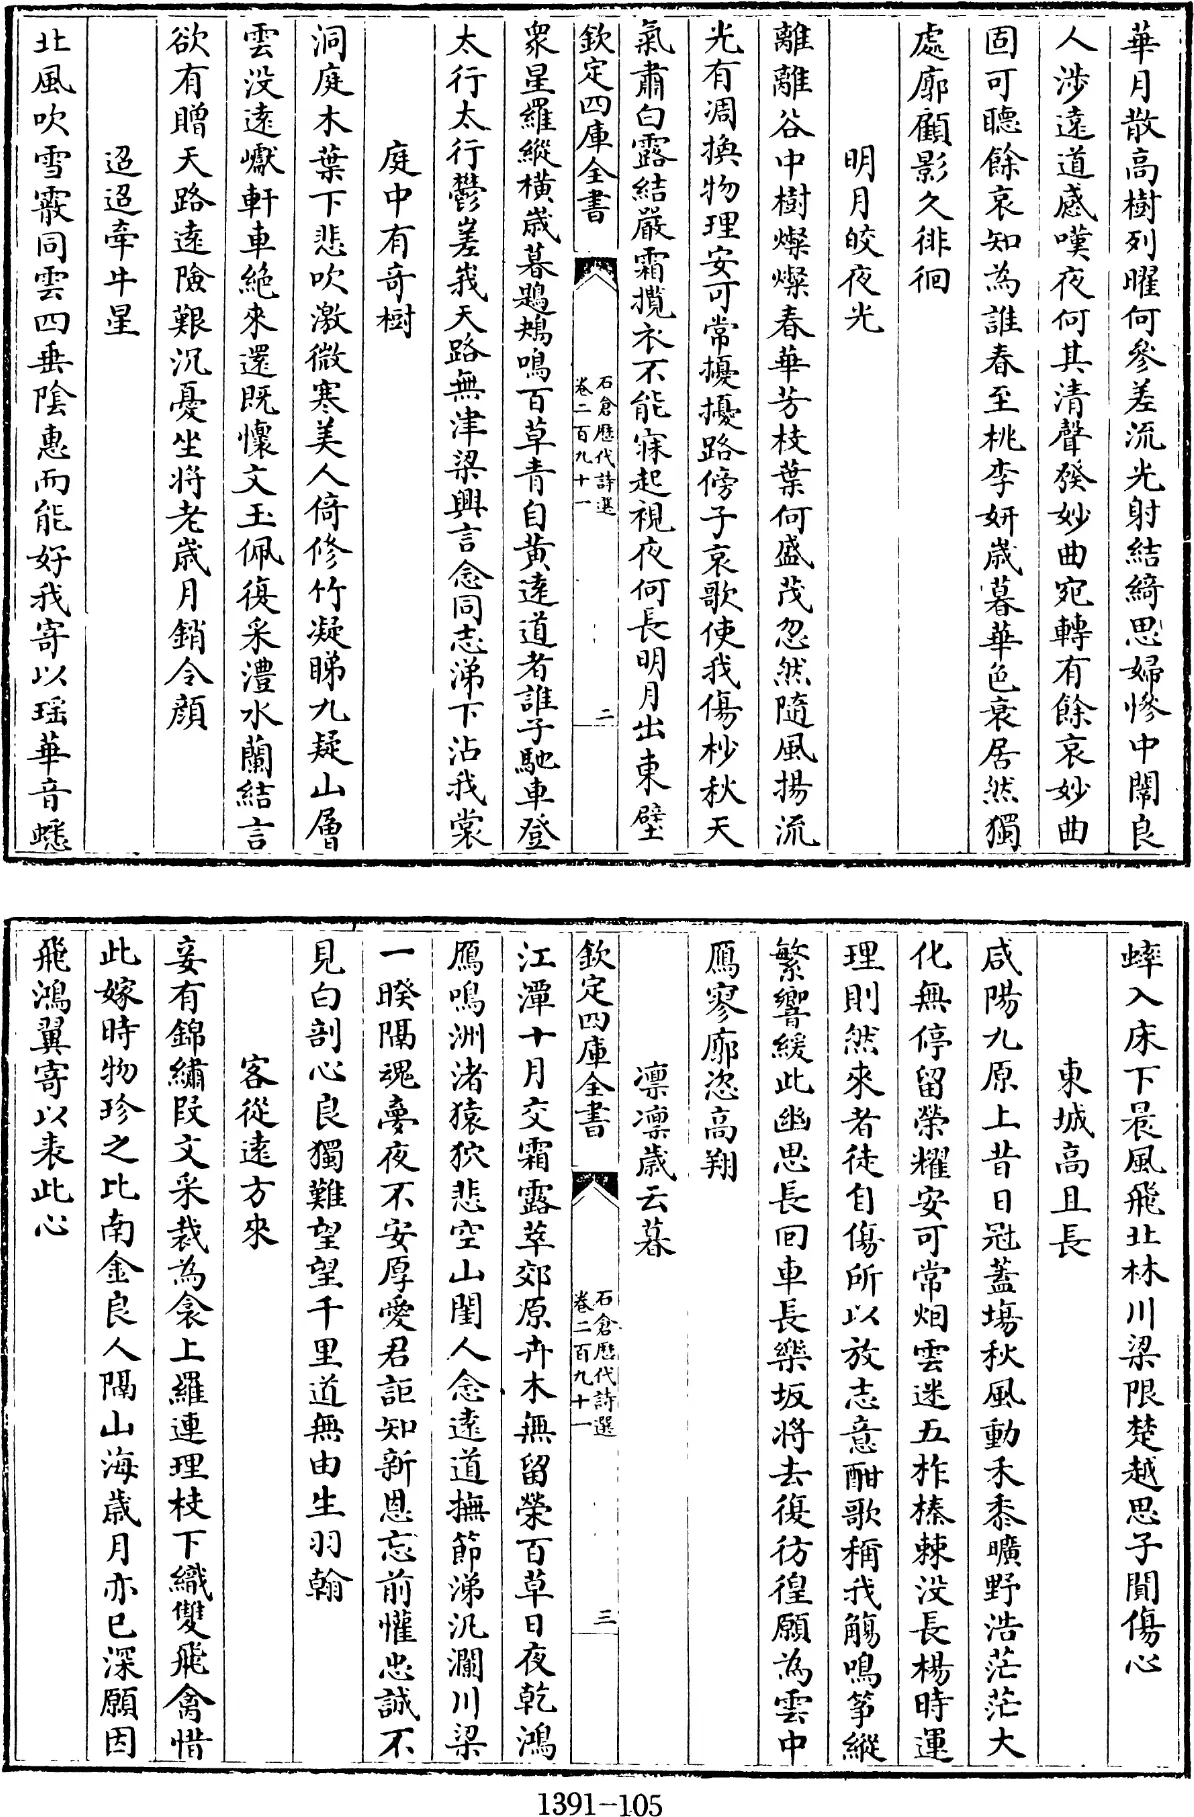 華月散高樹列曜何參差流光射結綺思婦慘中闈良
人涉遠道感嘆夜何其清聲發妙曲宛轉有餘哀妙曲
固可聽餘哀知為誰春至桃李妍歲暮華色衰居然獨
處廓顧影久徘徊
明月皎夜光
離離谷中樹燦燦春華芳枝葉何盛茂忽然隨風揚流
光有凋換物理安可常擾擾路傍子哀歌使我傷杪秋天
氣肅白露結嚴霜攬衣不能寐起視夜何長明月出東壁
欽定四庫全書
石倉歷代詩選
卷二百九十一
二
衆星羅縱橫歲暮鶗鴂鳴百草青自黃遠道者誰子馳車登
太行太行鬱嵳峩天路無津梁興言念同志涕下沾我裳
庭中有奇樹
洞庭木葉下悲吹激微寒美人倚修竹凝睇九疑山層
雲没遠巘軒車絶來還既懷文玉佩復采澧水蘭結言
欲有贈天路遠險艱沉憂坐將老歲月銷令顔
迢迢牽牛星
北風吹雪霰同雲四垂陰惠而能好我寄以瑶華音蟋
蟀入床下晨風飛北林川梁限楚越思子閒傷心
東城高且長
咸陽九原上昔日冠蓋塲秋風動禾黍曠野浩茫茫大
化無停留榮耀安可常烟雲迷五柞榛棘没長楊時運
理則然來者徒自傷所以放志意酣歌稱我觴鳴筝縱
繁響緩此幽思長回車長樂坂將去復彷徨願為雲中
鴈寥廓恣高翔
凛凛歲云暮
欽定四庫全書
石倉歷代詩選
卷二百九十一
三
江潭十月交霜露萃郊原卉木無留榮百草日夜乾鴻
鴈鳴洲渚猿狖悲空山閨人念遠道撫節涕汍瀾川梁
一暌隔魂夢夜不安厚愛君詎知新恩忘前懽忠誠不
見白剖心良獨難望望千里道無由生羽翰
客從遠方來
妾有錦繡段文采裁為衾上羅連理枝下織雙飛禽惜
此嫁時物珍之比南金良人隔山海歲月亦已深願因
飛鴻翼寄以表此心
1391-105